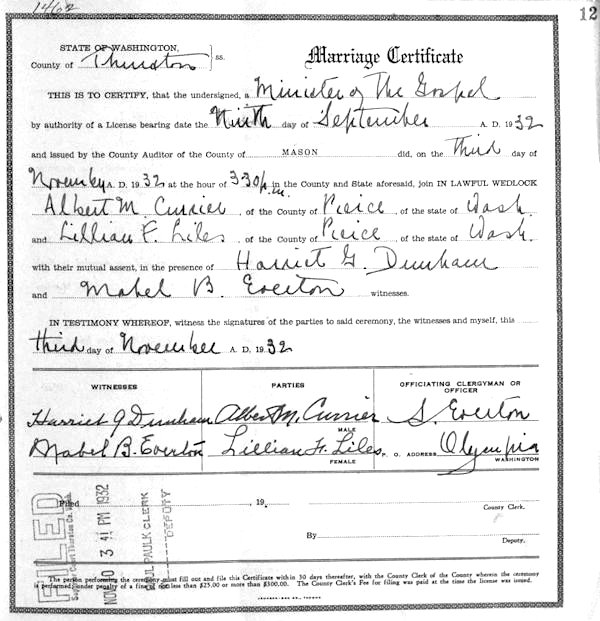 1462
12
STATE OF WASHINGTON,
County of Thurston } ss.
Marriage Certificate
THIS IS TO CERTIFY, that the undersigned, a Minister of The Gospel
by authority of a License bearing date the Ninth day of September A. D. 1932
and issued by the County Auditor of the County of MASON did, on the Third day of
November A. D. 1932 at the hour of 3:30 p.m. in the County and State aforesaid, join IN LAWFUL WEDLOCK
Albert M. Currier, of the County of Pierce, of the state of Wash.
and Lillian F. Liles, of the County of Pierce, of the state of Wash.
with their mutual assent, in the presence of Harriet G. Dunham
and Mabel B. Everton witnesses.
IN TESTIMONY WHEREOF, witness the signatures of the parties to said ceremony, the witnesses and myself, this
third day of November A. D. 1932
WITNESSES PARTIES OFFICIATING CLERGYMAN OR OFFICER
Harriet G Dunham Albert M. Currier S. Everton
MALE
Mabel B. Everton Lillian F. Liles, P. O. ADDRESS Olympia
FEMALE WASHINGTON
Filed , 19
County Clerk.
By
Deputy.
FILED
Superior Court Thurston Co. Wash.
NOV 10 3 41 PM 1932
PAULK CLERK
DEPUTY
The person performing the ceremony must fill out and file this Certificate within 30 days thereafter, with the County Clerk of the County wherein the ceremony
is performed under penalty of a fine of not less than $25.00 or more than $300.00. The County Clerk's Fee for filing was paid at the time the license was issued.